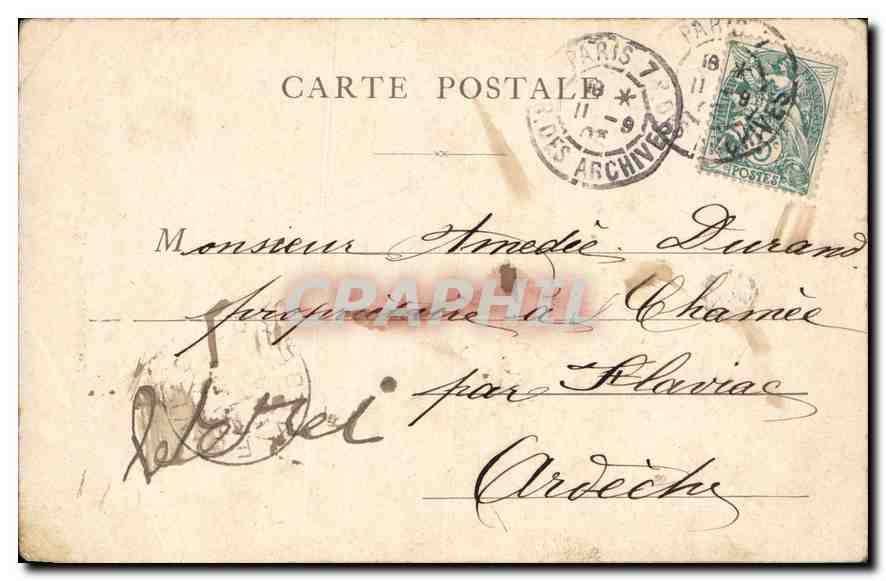 CARTE POSTALE
PARIS 7
18 *
11 - 9
R. DES ARCHIVES
PARIS
18 *
11 9
POSTES
Monsieur Amedée Durand
propriétaire à Chamée
par Flaviac
Ardèche
CRAPHIL